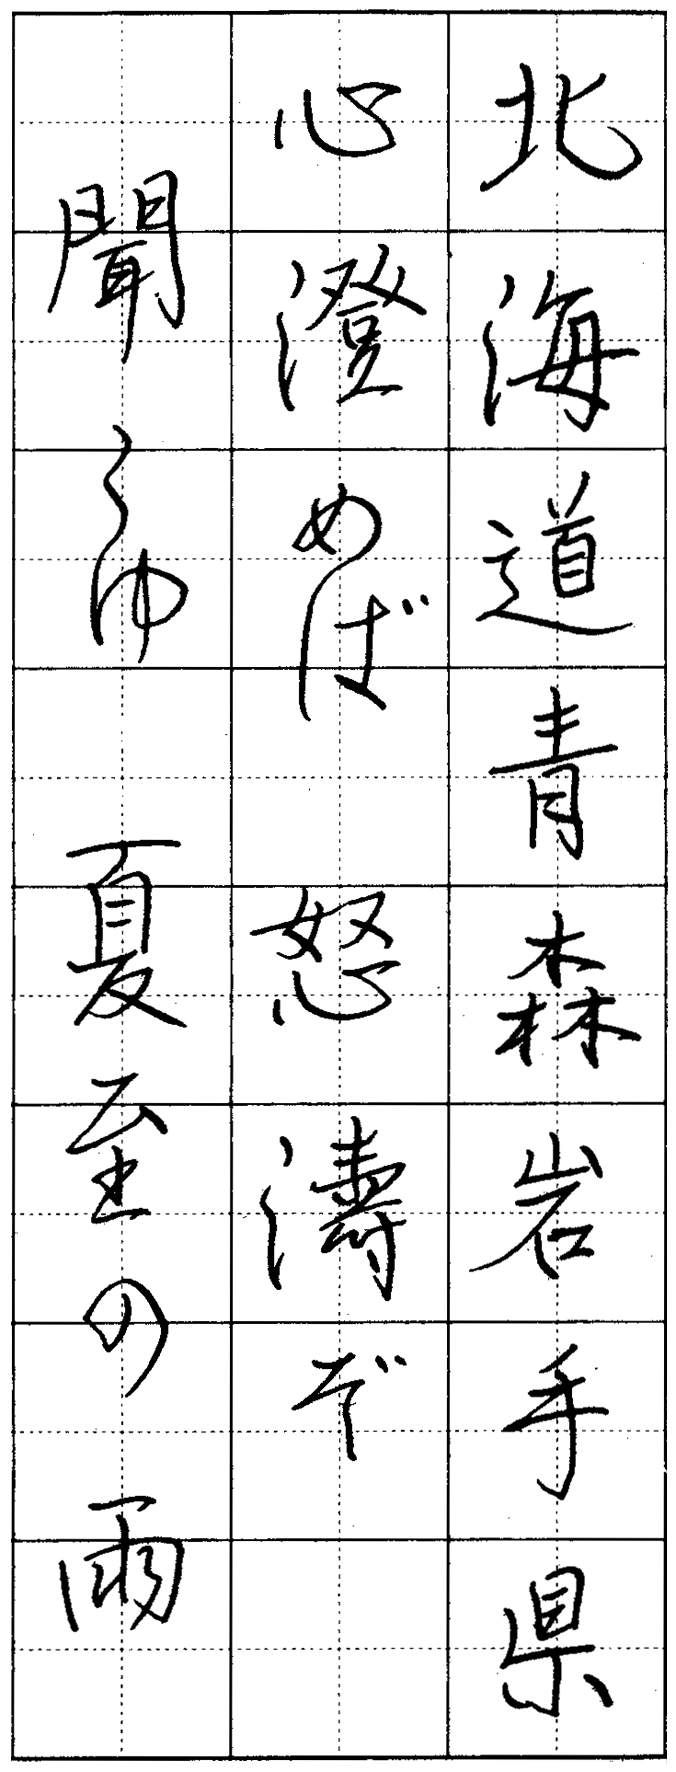 北海道青森岩手県
心澄めば怒濤ぞ
聞こゆ夏至の雨